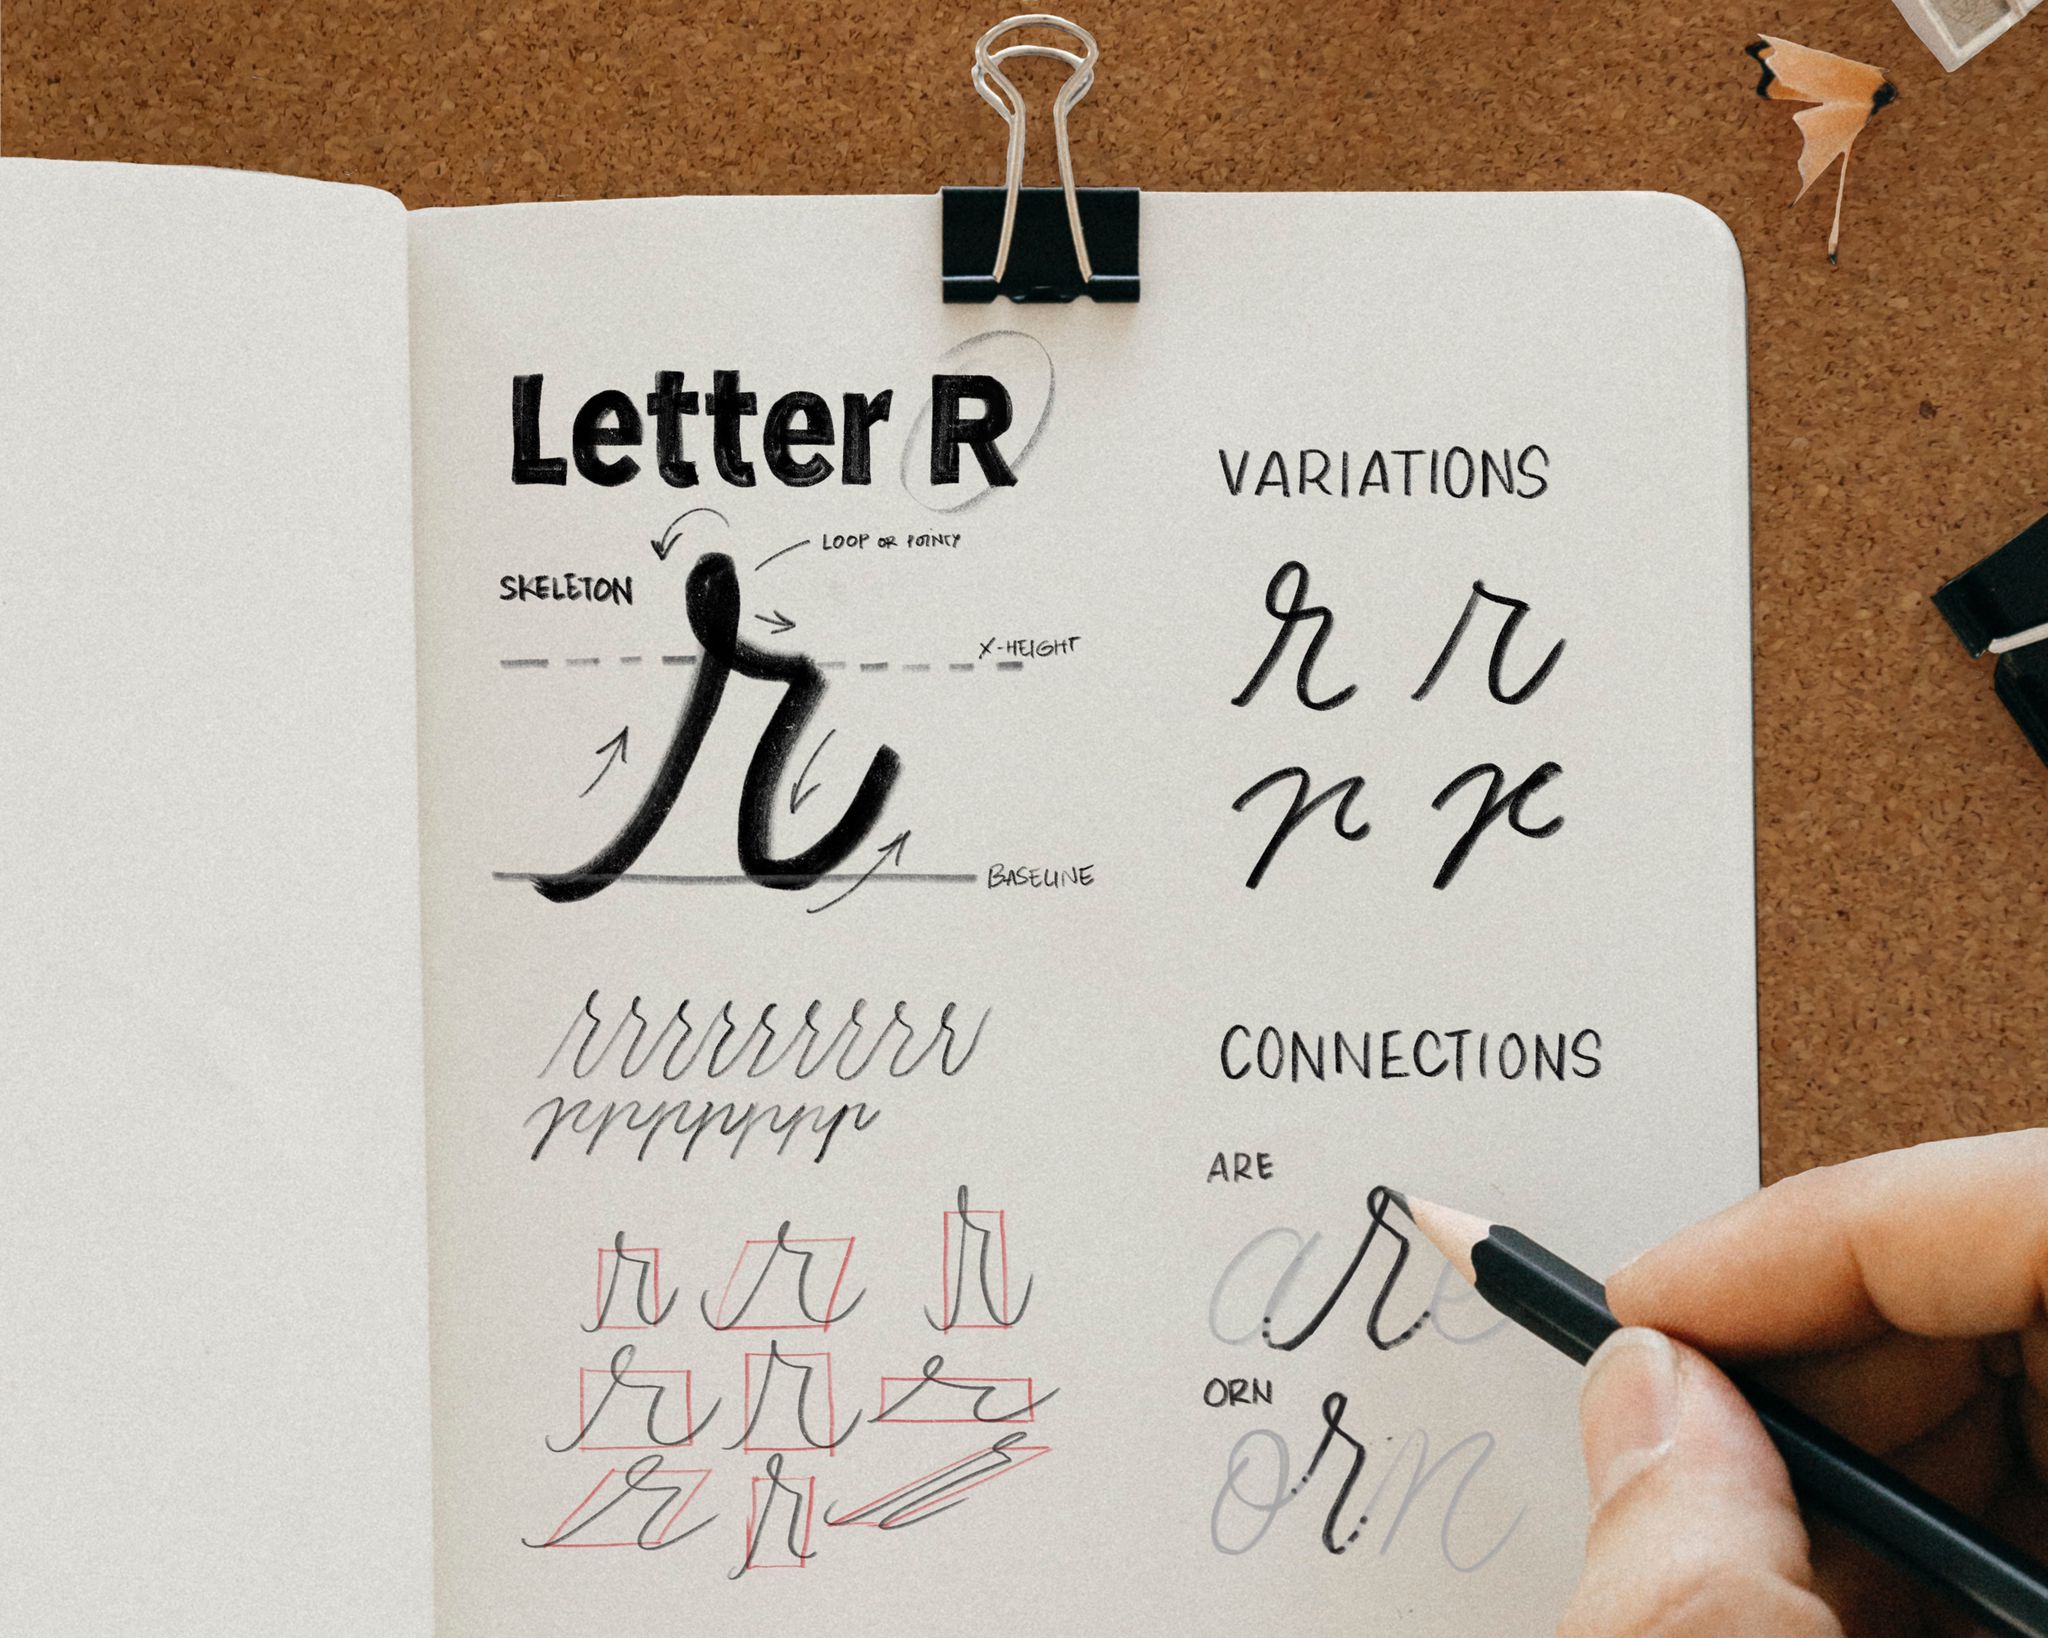 Letter R
LOOP OR POINTY
SKELETON
X-HEIGHT
BASELINE
rrrrrrrrr
rrrrrrr
r r r
r r r
r r r
VARIATIONS
r r
r r
CONNECTIONS
ARE
are
ORN
orn